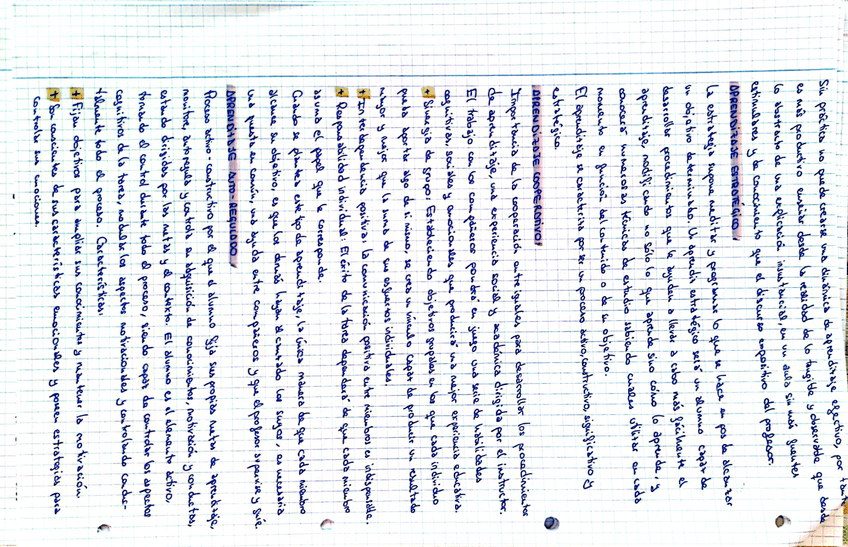 Sin práctica no puede crearse una dinámica de aprendizaje efectivo, por tanto
es más productivo enseñar desde la realidad de lo tangible y observable que desde
lo abstracto de una explicación insustancial, en un aula sin más fuentes
estimulares y de conocimiento que el discurso expositivo del profesor.
APRENDIZAJE ESTRATÉGICO
La estrategia supone meditar y programar lo que se hace en pos de alcanzar
un objetivo determinado. Un aprendiz estratégico será un alumno capaz de
desarrollar procedimientos que le ayuden a llevar a cabo más fácilmente el
aprendizaje, modificando no sólo lo que aprende sino cómo lo aprende, y
conocerá numerosas técnicas de estudio sabiendo cuales utilizar en cada
momento en función del contenido o de su objetivo.
El aprendizaje se caracteriza por ser un proceso activo, constructivo, significativo y
estratégico.
APRENDIZAJE COOPERATIVO
Importancia de la cooperación entre iguales para desarrollar los procedimientos
de aprendizaje, una experiencia social y académica dirigida por el instructor.
El trabajo con los compañeros pondrá en juego una serie de habilidades
cognitivas, sociales y emocionales que producirá una mejor experiencia educativa.
+ Sinergia de grupo: Estableciendo objetivos grupales en los que cada individuo
pueda aportar algo de si mismo, se crea un vínculo capaz de producir un resultado
mayor y mejor que la suma de sus esfuerzos individuales.
+ Interdependencia positiva: la comunicación positiva entre miembros es indispensable.
+ Responsabilidad individual: El éxito de la tarea dependerá de que cada miembro
asuma el papel que le corresponde.
Cuando se plantea este tipo de aprendizaje, la única manera de que cada miembro
alcance su objetivo, es que los demás hayan alcanzado los suyos, es necesaria
una puesta en común, una ayuda entre compañeros y que el profesor supervise y guíe.
APRENDIZAJE AUTO-REGULADO
Proceso activo-constructivo por el que el alumno fija sus propias metas de aprendizaje,
monitorea, autorregula y controla su adquisición de conocimientos, motivación y conductas,
estando dirigidas por las metas y el contexto. El alumno es el elemento activo,
tomando el control durante todo el proceso, siendo capaz de controlar los aspectos
cognitivos de la tarea, modular los aspectos motivacionales y controlando conduc-
tualmente todo el proceso. Características:
+ Fijan objetivos para ampliar sus conocimientos y mantener la motivación
+ Son conscientes de sus características emocionales y poseen estrategias para
controlar sus emociones.